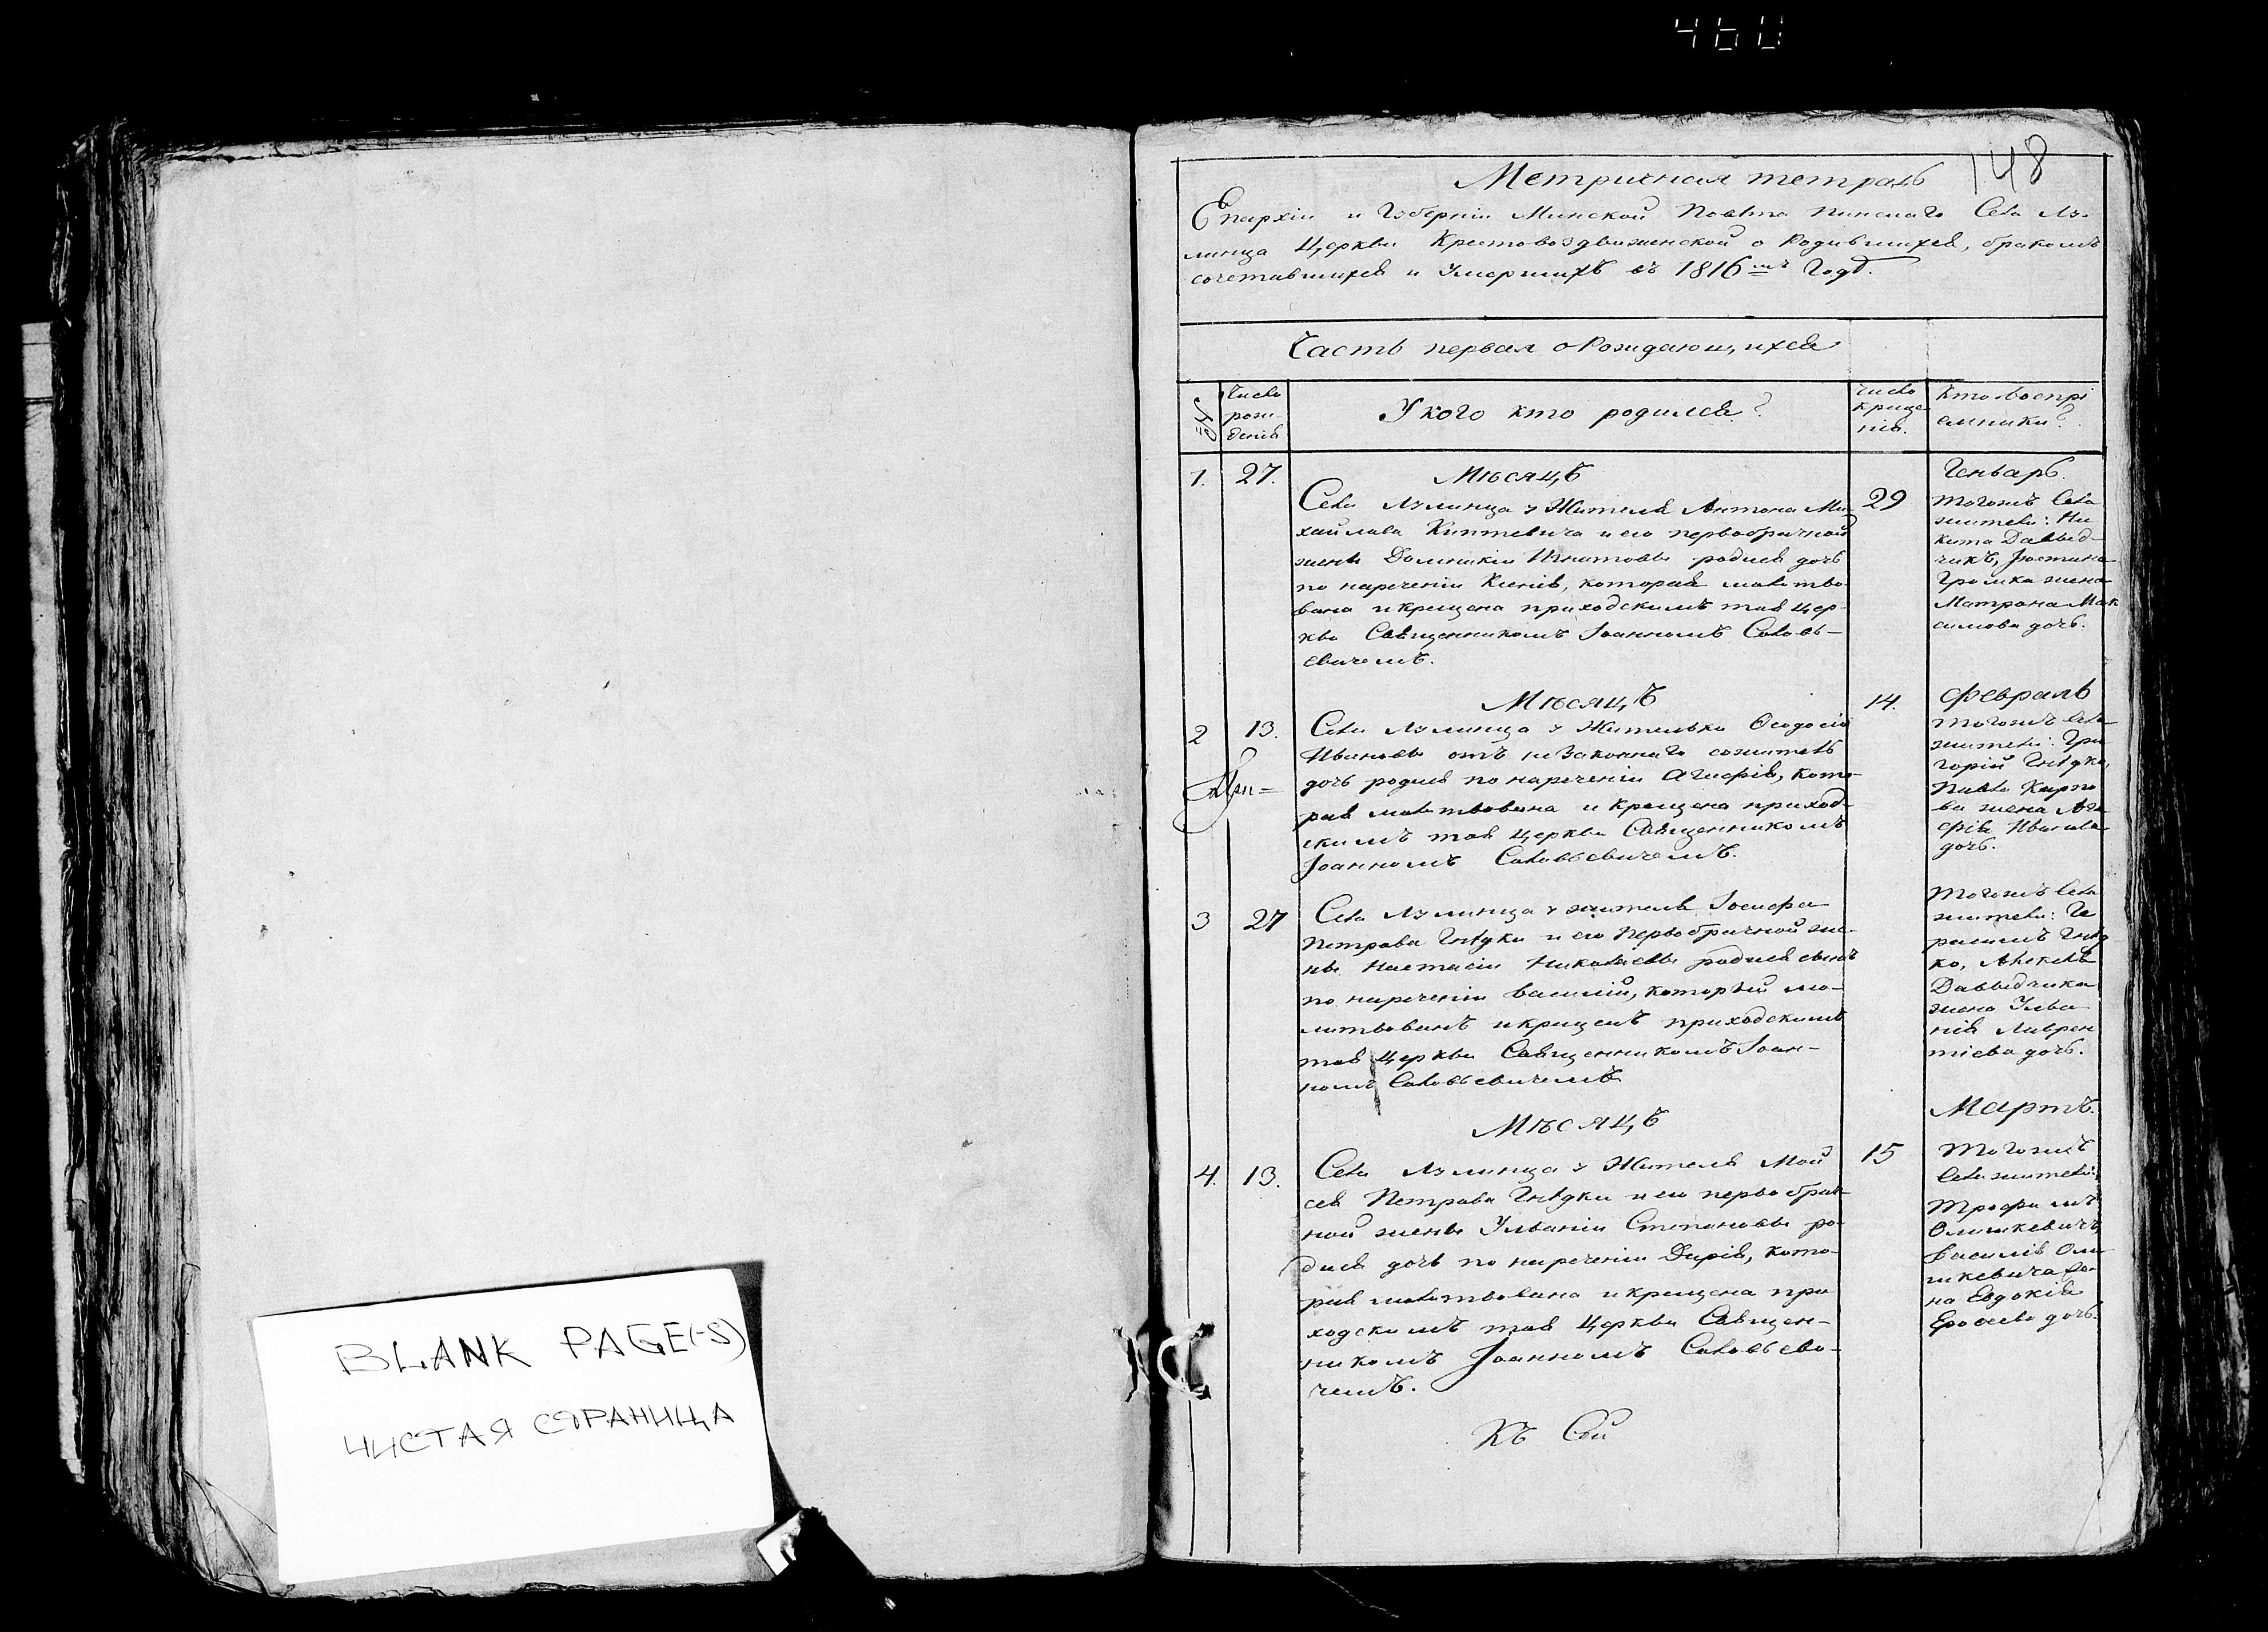 460
148
Метричная тетрадь
Епархіи и Губерніи Минской Повѣта Пинскаго Села Лу-
линца Церкви Крестовоздвиженской о Родившихся, бракомъ
сочетавшихся и Умершихъ въ 1816мъ Годѣ.
Часть первая о Рождающихся
№
Число
рож-
денія
У кого кто родился?
Число
креще
нія.
Кто воспрі
емники?
1.
27.
Мѣсяцъ
Генварь.
Села Лулинца у Жителя Антона Ми-
хайлова Киптевича и его первобрачной
жены Домникіи Игнатовы родися дочь
по нареченіи Ксенія, которая молитво-
вана и крещена приходскимъ тоя цер-
кви Священникомъ Іоанномъ Соловь-
евичемъ.
29
тогожъ Села
жители: Ни
кита Давыд-
чикъ, Юстина
Громка жена
Матрона Мак
симова дочь.
Мѣсяцъ
14.
Февраль
2
13.
Села Лулинца у Жительки Ѳеодосіи
Ивановы отъ незаконнаго сожитія
дочь родися по нареченіи Агафія, кото-
рая молитвована и крещена приход-
скимъ тоя церкви Священникомъ
Іоанномъ Соловьевичемъ.
тогожъ Села
жители: Гри
горій Гнѣдко,
Павла Карпо
ва жена Ага
фія Иванова
дочь.
3
27
Села Лулинца у жителя Іосифа
Петрова Гнѣдки и его первобрачной же-
ны Настасіи Николаевы родися сынъ
по нареченіи Василій, который мо-
литвованъ и крещенъ приходскимъ
тоя Церкви Священникомъ Іоан-
номъ Соловьевичемъ
тогожъ Села
жители: Ге
расимъ Гнѣд
ко, Алексѣя
Давыдчика
жена Улья-
нія Лаврен
тіева дочь.
Мѣсяцъ
Мартъ.
4.
13.
Села Лулинца у Жителя Мои
сея Петрова Гнѣдки и его первобрач-
ной жены Ульяніи Степановы ро-
дися дочь по нареченіи Дарія, кото-
рая молитвована и крещена при
ходскимъ тоя Церкви Священ-
никомъ Іоанномъ Соловьеви-
чемъ.
15
тогожъ
Села жители:
Трофимъ
Олишкевичъ,
Василія Оли
шкевича же-
на Евдокія
дочь.
BLANK PAGE(-S)
ЧИСТАЯ СТРАНИЦА